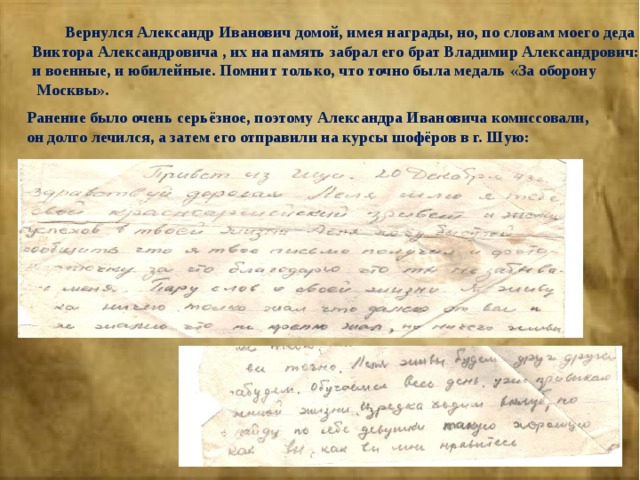 Вернулся Александр Иванович домой, имея награды, но, по словам моего деда
Виктора Александровича , их на память забрал его брат Владимир Александрович:
и военные, и юбилейные. Помнит только, что точно была медаль «За оборону
Москвы».
Ранение было очень серьёзное, поэтому Александра Ивановича комиссовали,
он долго лечился, а затем его отправили на курсы шофёров в г. Шую:
Привет из Шуи. 20 Декабря
здравствуй дорогая Неля шлю я тебе
свой красноармейский привет и желаю
успехов в твоей жизни Неля могу
сообщить что я твое письмо получил и фото
за что благодарю что ты не забыва-
меня. Пару слов о своей жизни. Я живу
ничего только жал что далеко от вас и
не знаю что но ничего живы
не
ви точно. Неля живы будем друг друга
забудем. Обучаемся весь день, уже привыкаю
жизни. Изредка ходим в клуб, но
найду по себе девушки такую хорошую
как вы, как ви мне нравитесь